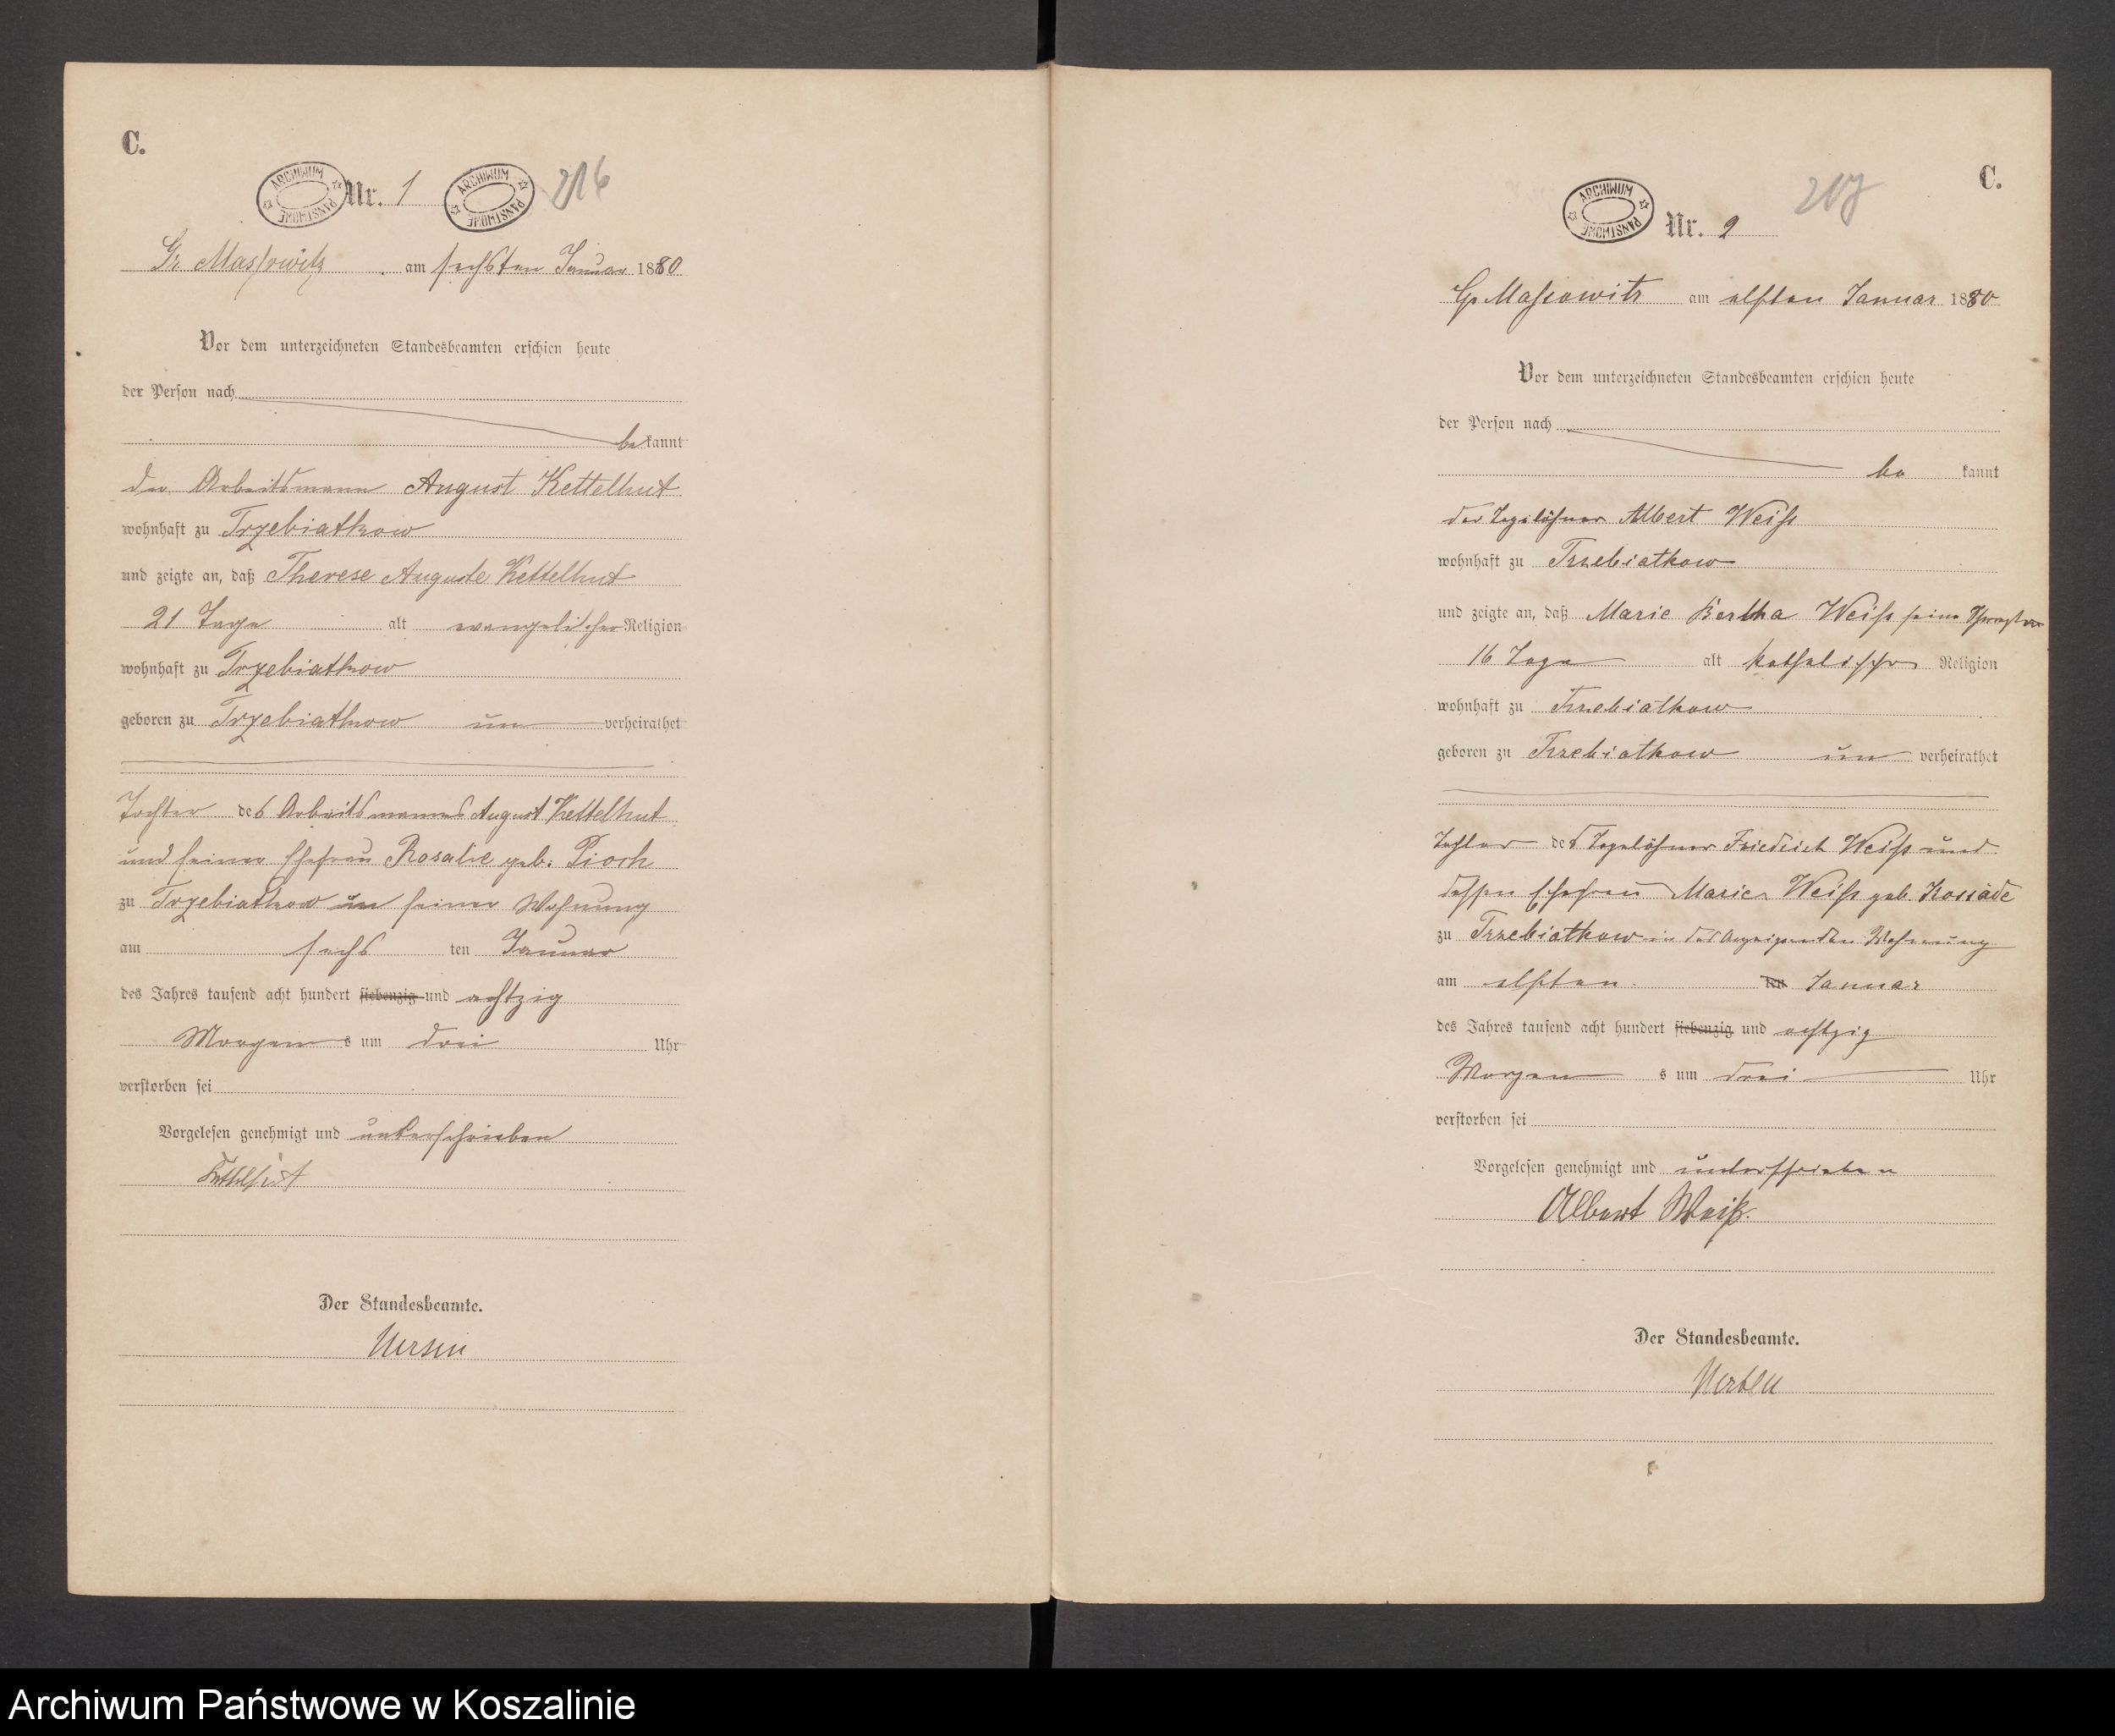 C.
ARCHIWUM PAŃSTWOWE Nr. 1 ARCHIWUM PAŃSTWOWE 216
Gr. Massowitz am sechsten Januar 1880
Vor dem unterzeichneten Standesbeamten erschien heute
der Person nach
bekannt
der Arbeitsmann August Kettelhut
wohnhaft zu Trzebiatkow
und zeigte an, daß Therese Auguste Kettelhut
21 Tage alt evangelischer Religion
wohnhaft zu Trzebiatkow
geboren zu Trzebiatkow un verheirathet
Tochter des Arbeitsmannes August Kettelhut
und seiner Ehefrau Rosalie geb. Pioch
zu Trzebiatkow in seiner Wohnung
am sechs ten Januar
des Jahres tausend acht hundert siebenzig und achtzig
Morgens um drei Uhr
verstorben sei
Vorgelesen genehmigt und unterschrieben
Kettelhut
Der Standesbeamte.
C.
ARCHIWUM PAŃSTWOWE Nr. 2 217
Gr. Massowitz am elften Januar 1880
Vor dem unterzeichneten Standesbeamten erschien heute
der Person nach
be kannt
der Tagelöhner Albert Weiß
wohnhaft zu Trzebiatkow
und zeigte an, daß Marie Bertha Weiß seine Schwester
16 Tage alt katholischer Religion
wohnhaft zu Trzebiatkow
geboren zu Trzebiatkow un verheirathet
Tochter des Tagelöhner Friedrich Weiß und
dessen Ehefrau Marie Weiß geb.
zu Trzebiatkow in des Anzeigenden Wohnung
am elften ten Januar
des Jahres tausend acht hundert siebenzig und achtzig
Morgen s um drei Uhr
verstorben sei
Vorgelesen genehmigt und unterschrieben
Albert Weiß.
Der Standesbeamte.
Archiwum Państwowe w Koszalinie